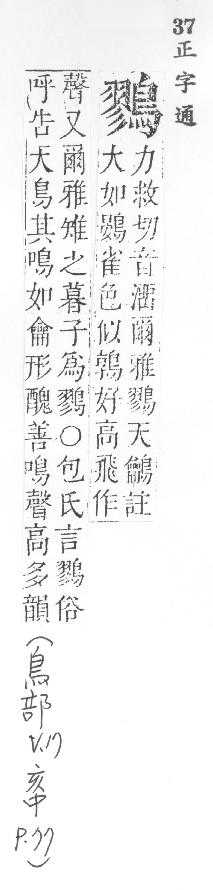 37正字通
鷚
力救切音溜爾雅鷚天鸙註
大如鷃雀色似鶉好高飛作
聲又爾雅雉之暮子為鷚○包氏言鷚俗
呼告天鳥其鳴如龠形醜善鳴聲高多韻
(鳥部
V.17
亥中
P.77)